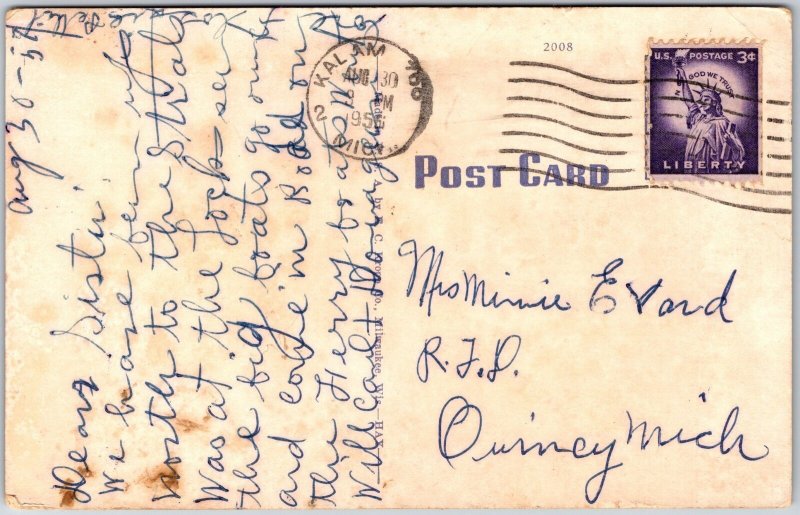 2008
KALAMAZOO
AUG 30
2 PM
1956
MICH.
U.S. POSTAGE 3¢
IN GOD WE TRUST
LIBERTY
POST CARD
Aug 30-56
Dear Sister.
We have been up
north to the Straits
Was at the Locks seen
the big boats go out
and come in Rode on
the Ferry boats
Will call
Mrs Minnie E Vard
R.F.D.
Quincy Mich
Co., Milwaukee, Wis.